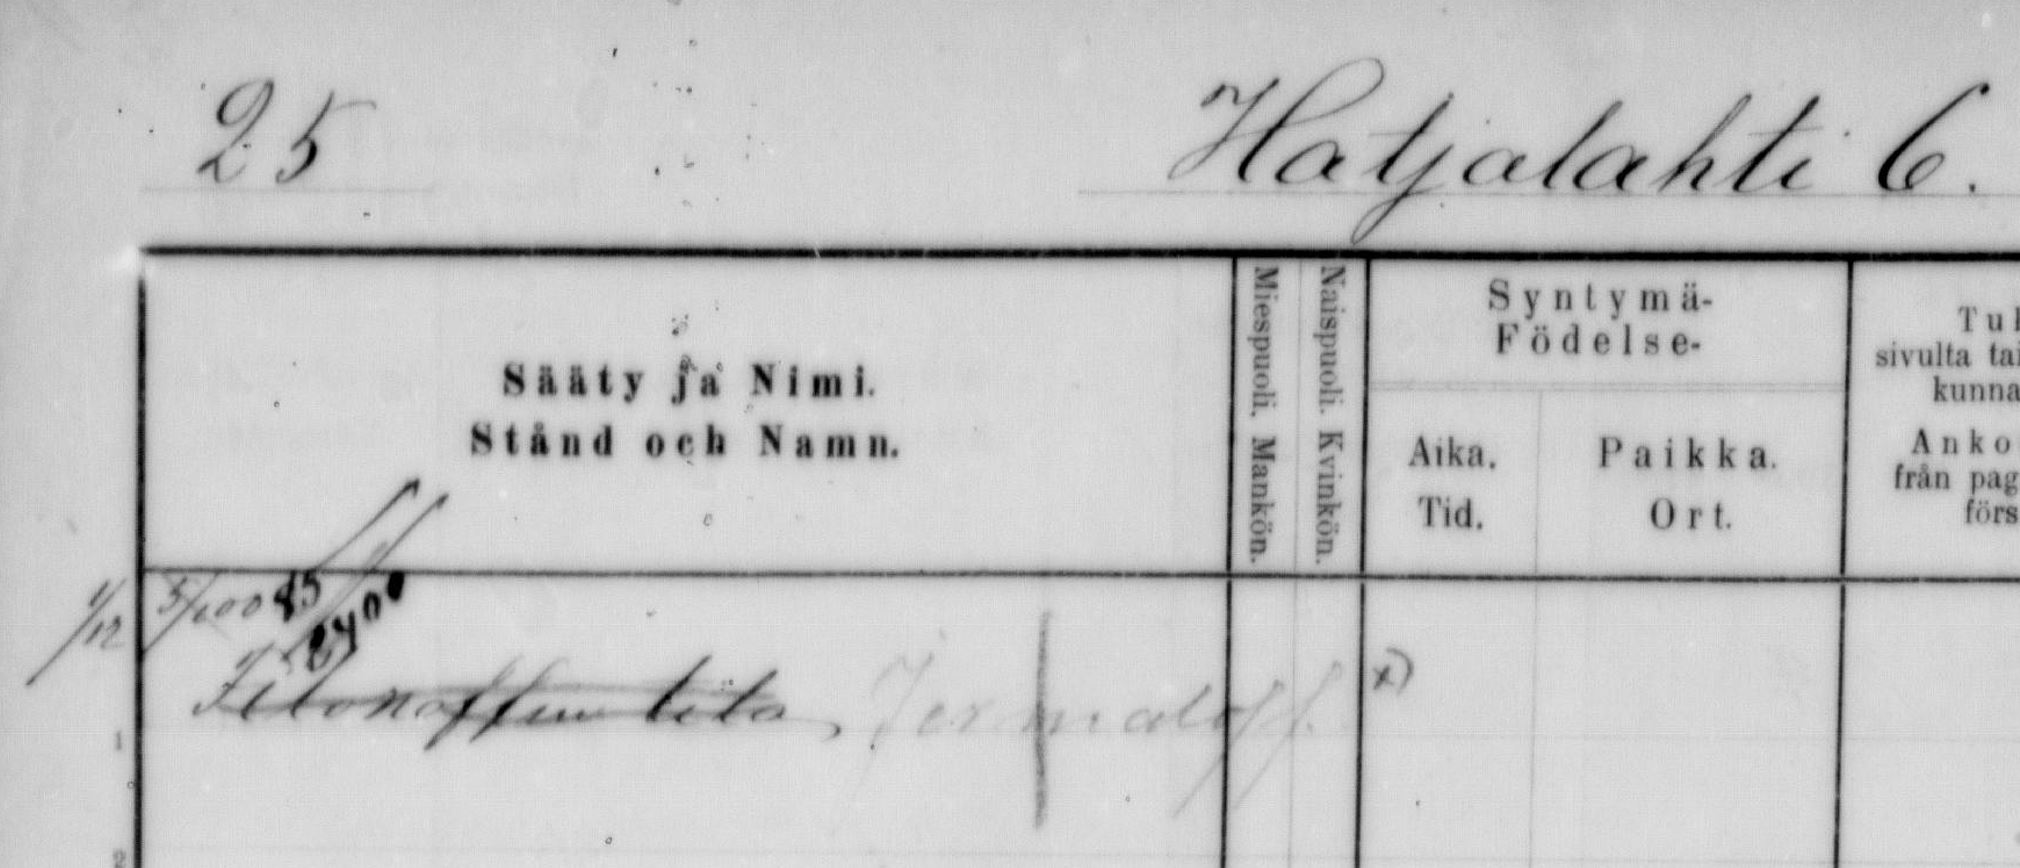 25 Hatjalahti 6.
Sääty ja Nimi.
Stånd och Namn.
Miespuoli. Mankön.
Naispuoli. Kvinkön.
Syntymä-
Födelse-
Aika.
Tid.
Paikka.
Ort.
Tul
sivulta tai
kunna
Anko
från pag
förs
1/12 5/100 85
Filonoffin tila, Jermaloff. x)
1
2